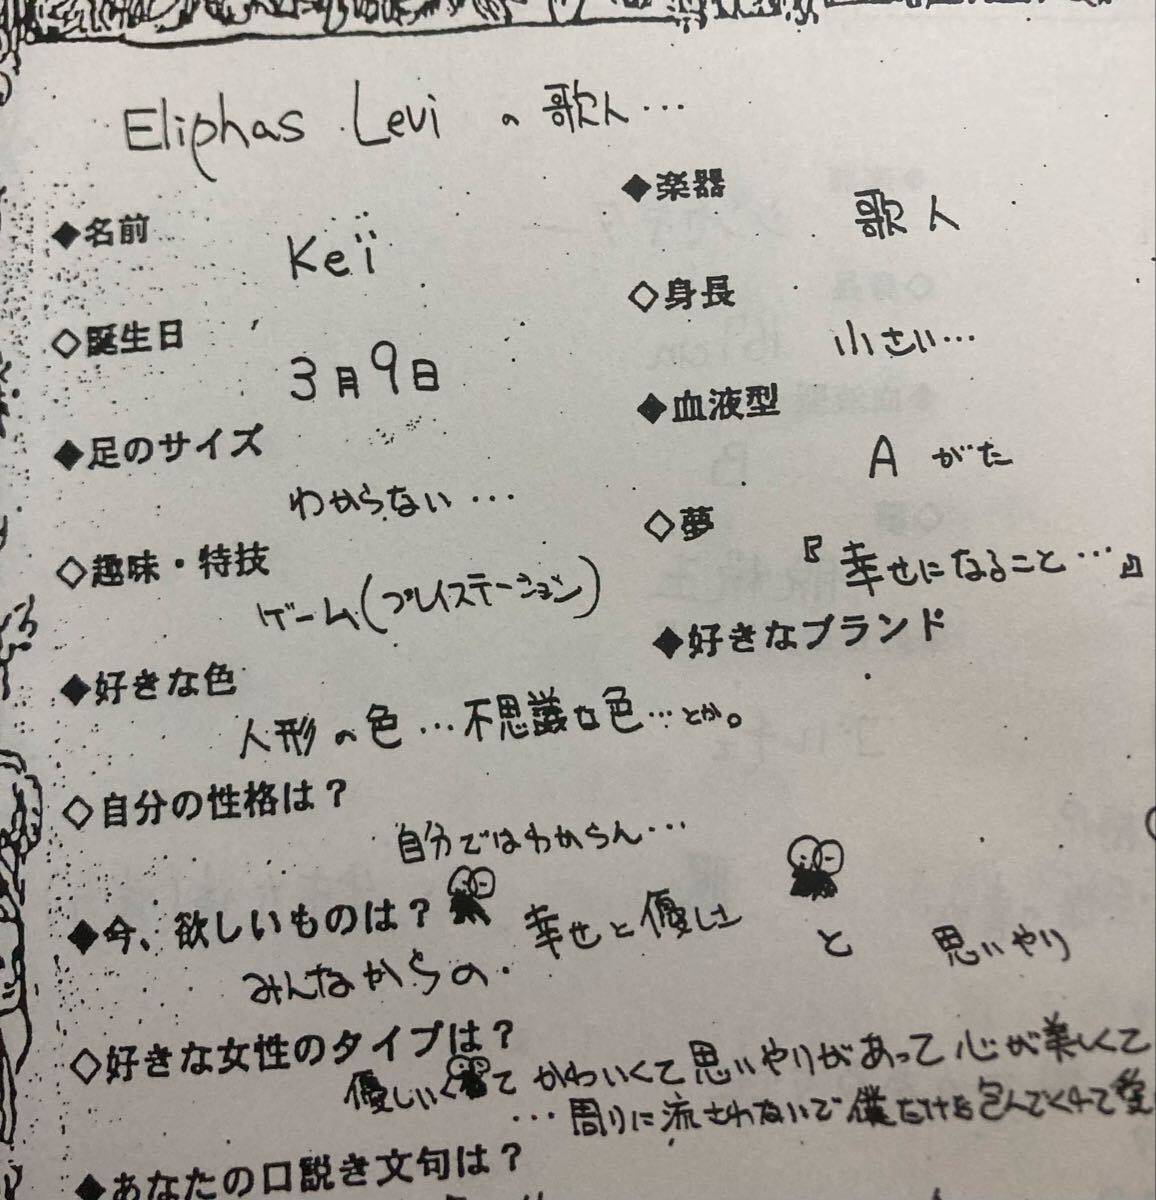 Eliphas Levi の歌人…
◆名前
Keï
◆楽器
歌人
◇誕生日
3月9日
◇身長
小さい…
◆足のサイズ
わからない…
◆血液型
A がた
◇趣味・特技
ゲーム(プレイステーション)
◇夢
『幸せになること…』
◆好きな色
人形の色…不思議な色…とか。
◆好きなブランド
◇自分の性格は？
自分ではわからん…
◆今、欲しいものは？
みんなからの・幸せと優しさ と 思いやり
◇好きな女性のタイプは？
優しいくて かわいくて思いやりがあって心が美しくて
…周りに流されないで僕だけを包んでくれて愛
◆あなたの口説き文句は？